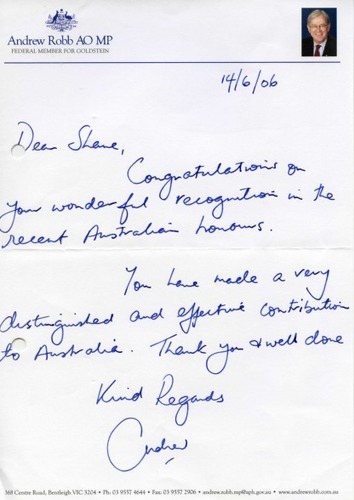 Andrew Robb AO MP
FEDERAL MEMBER FOR GOLDSTEIN
14/6/06
Dear Shane,
Congratulations on
your wonderful recognition in the
recent Australian honours.
You have made a very
distinguished and effective contribution
to Australia. Thank you & well done
Kind Regards
Andrew
368 Centre Road, Bentleigh VIC 3204 • Ph: 03 9557 4644 • Fax: 03 9557 2906 • andrew.robb.mp@aph.gov.au • www.andrewrobb.com.au